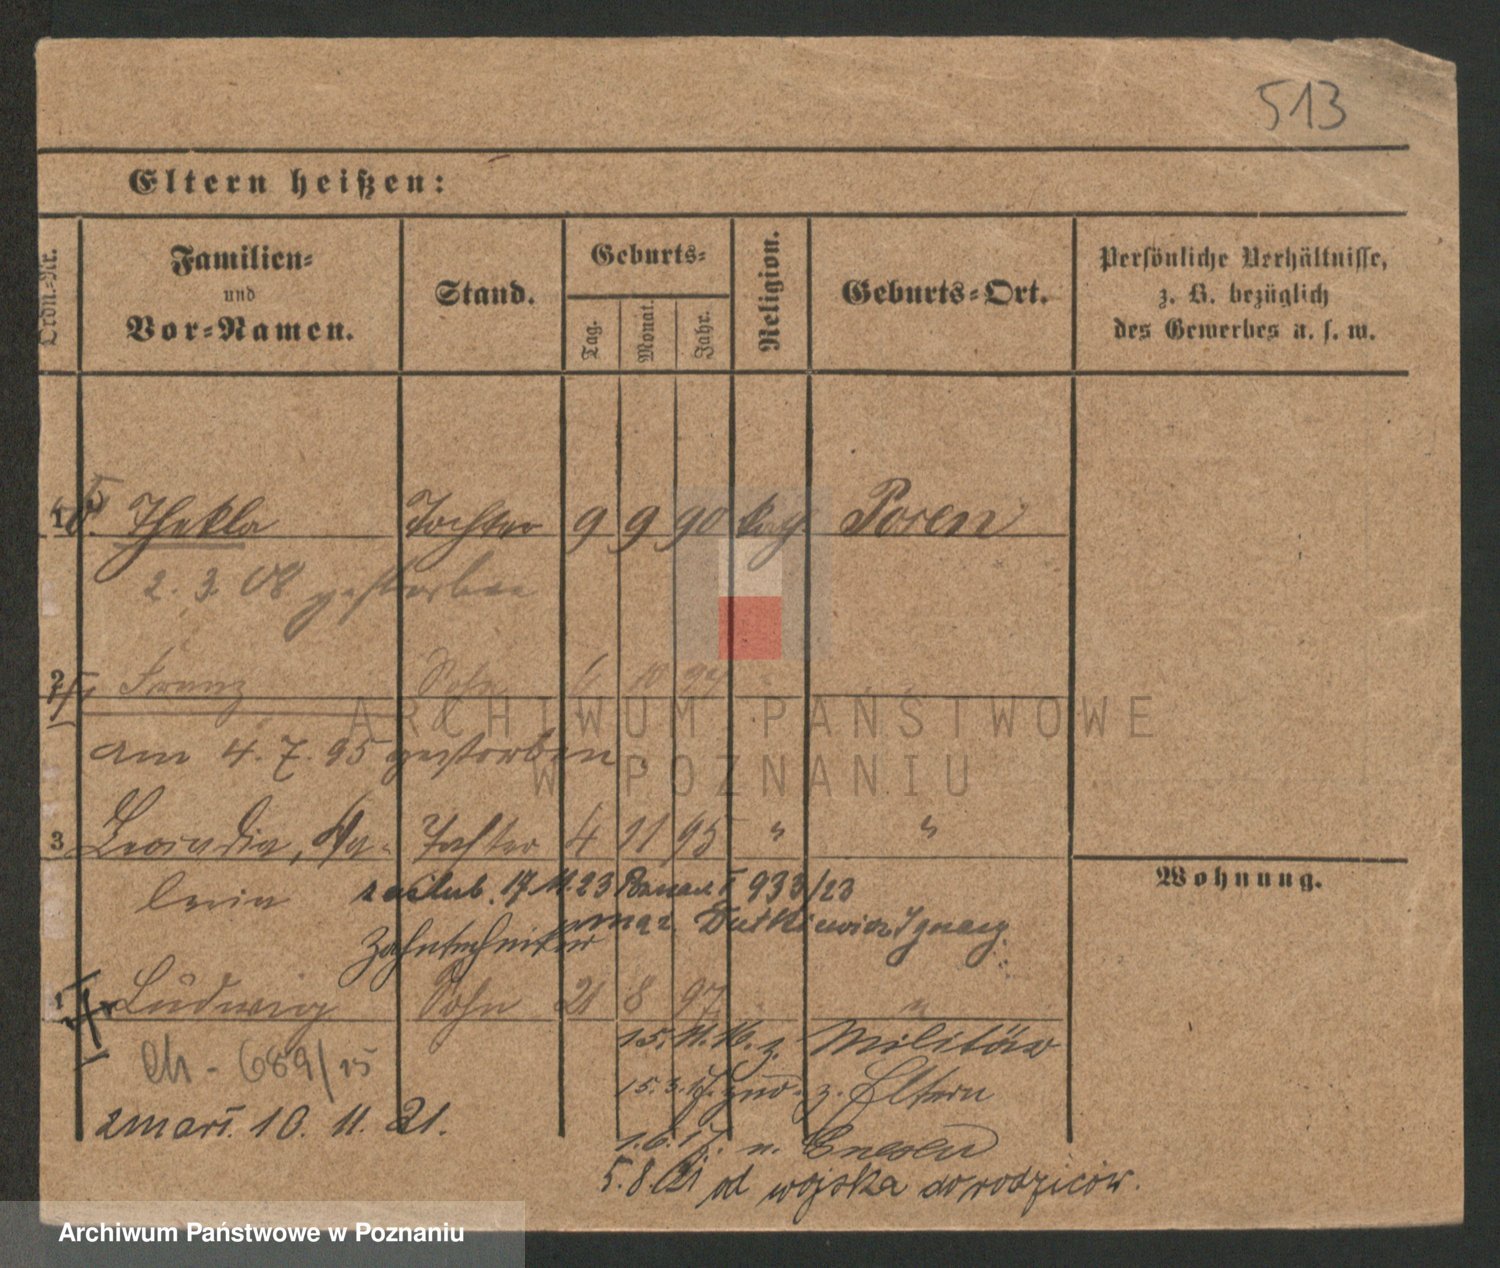 513
Eltern heißen:
Ordn.-Nr.
Familien-
und
Vor-Namen.
Stand.
Geburts-
Tag.
Monat.
Jahr.
Religion.
Geburts-Ort.
Persönliche Verhältnisse,
z. B. bezüglich
des Gewerbes u. s. w.
1 Thekla Tochter 9 9 90 Posen
2. 3. 08 gestorben
2 Franz Sohn 10 94
am 4. 7. 95 gestorben
ARCHIWUM PAŃSTWOWE
W POZNANIU
3 Leocadia, Tochter 4 11 95 " "
Wohnung.
zaślub. 17.11.23 Poznań 933/23
Zahntechniker Dutkiewicz Ignacy.
Ludwig Sohn 21 8 97 "
15. 11. 16. z. Militär
689/15
15. 3. 17. z. Eltern
zmarł. 10. 11. 21.
1. 6. 17. n. Gnesen
5. 8. 21 od wojska do rodziców.
Archiwum Państwowe w Poznaniu